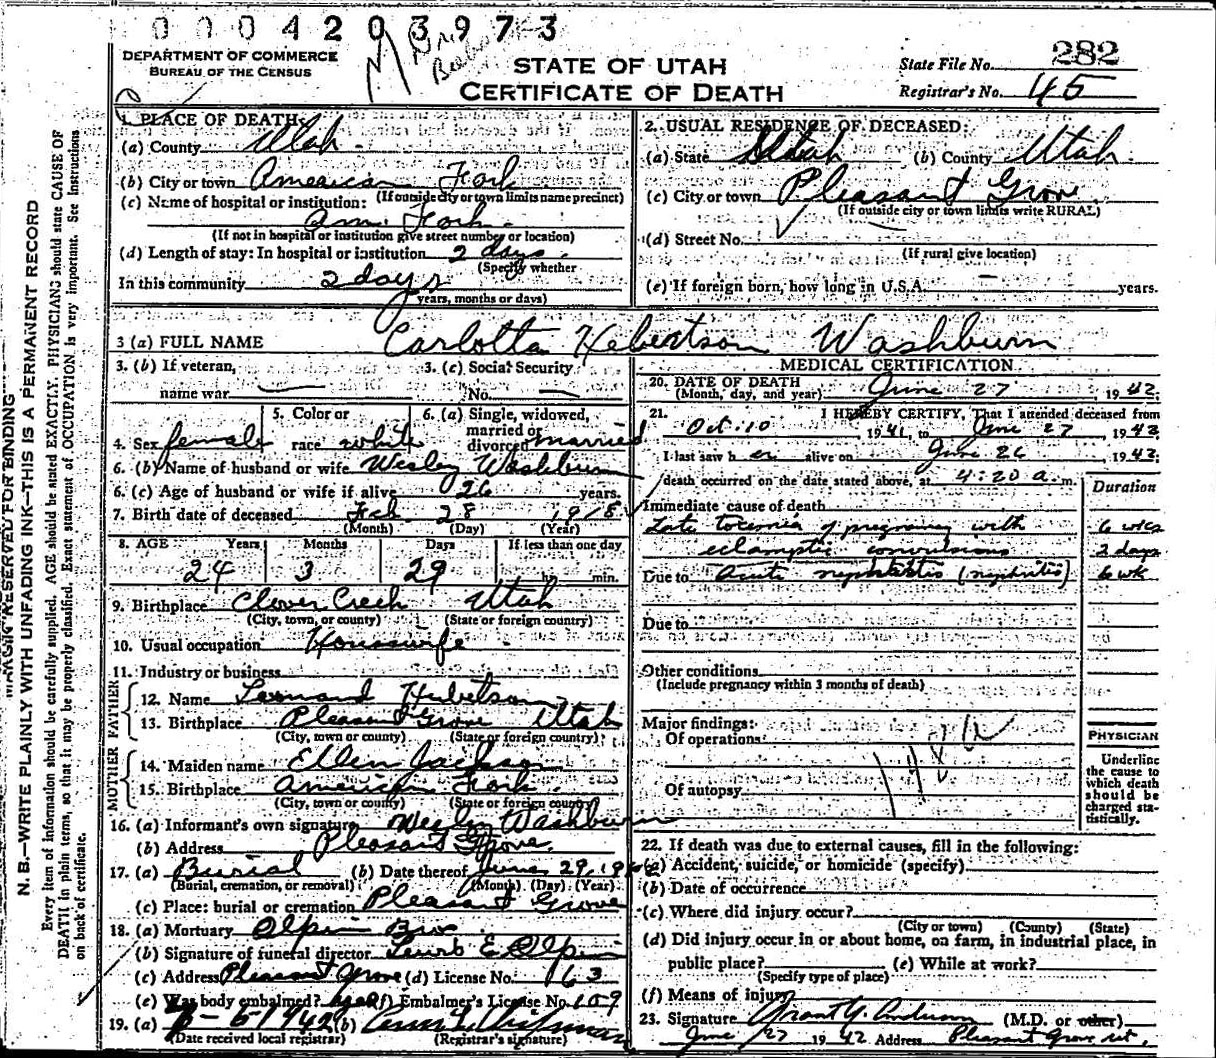 0004203973
DEPARTMENT OF COMMERCE
BUREAU OF THE CENSUS
STATE OF UTAH
CERTIFICATE OF DEATH
State File No. 282
Registrar's No. 45
1. PLACE OF DEATH:
(a) County Utah
(b) City or town American Fork
(If outside city or town limits name precinct)
(c) Name of hospital or institution:
Am. Fork
(If not in hospital or institution give street number or location)
(d) Length of stay: In hospital or institution 2 days.
(Specify whether
In this community 2 days
years, months or days)
2. USUAL RESIDENCE OF DECEASED:
(a) State Utah (b) County Utah
(c) City or town Pleasant Grove
(If outside city or town limits write RURAL)
(d) Street No.
(If rural give location)
(e) If foreign born, how long in U.S.A. — years.
3 (a) FULL NAME Carlotta Hebertson Washburn
3. (b) If veteran, name war —
3. (c) Social Security No. —
4. Sex female
5. Color or race white
6. (a) Single, widowed, married or divorced married
6. (b) Name of husband or wife Wesley Washburn
6. (c) Age of husband or wife if alive 26 years.
7. Birth date of deceased Feb. 28 1918
(Month) (Day) (Year)
8. AGE Years Months Days If less than one day
24 3 29 hr. min.
9. Birthplace Clover Creek Utah
(City, town, or county) (State or foreign country)
10. Usual occupation Housewife
11. Industry or business
FATHER
12. Name Leonard Hebertson
13. Birthplace Pleasant Grove Utah
(City, town or county) (State or foreign country)
MOTHER
14. Maiden name Ellen Jackson
15. Birthplace American Fork.
(City, town or county) (State or foreign country)
16. (a) Informant's own signature Wesley Washburn
(b) Address Pleasant Grove.
17. (a) Burial (b) Date thereof June 29, 1942
(Burial, cremation, or removal) (Month) (Day) (Year)
(c) Place: burial or cremation Pleasant Grove
18. (a) Mortuary Olpin Bro.
(b) Signature of funeral director E Olpin
(c) Address Pleasant Grove (d) License No. 163
(e) Was body embalmed? (f) Embalmer's License No. 109
19. (a) 1942 (b)
(Date received local registrar) (Registrar's signature)
MEDICAL CERTIFICATION
20. DATE OF DEATH
(Month, day, and year) June 27 1942
21. I HEREBY CERTIFY, That I attended deceased from
Oct. 10 1941, to June 27 1942
I last saw her alive on June 26 1942;
death occurred on the date stated above, at 4:20 a. m.
Duration
Immediate cause of death
Late toxemia of pregnancy with 6 wks
eclamptic convulsions 2 days
Due to Acute (nephritis) 6 wk
Due to
Other conditions
(Include pregnancy within 3 months of death)
Major findings:
Of operations
Of autopsy
PHYSICIAN
Underline the cause to which death should be charged statistically.
22. If death was due to external causes, fill in the following:
(a) Accident, suicide, or homicide (specify)
(b) Date of occurrence
(c) Where did injury occur?
(City or town) (County) (State)
(d) Did injury occur in or about home, on farm, in industrial place, in
public place? (e) While at work?
(Specify type of place)
(f) Means of injury
23. Signature Grant Y. Anderson (M.D. or other)
June 27 1942 Address Pleasant Grove Ut.
MARGIN RESERVED FOR BINDING
N. B.—WRITE PLAINLY WITH UNFADING INK—THIS IS A PERMANENT RECORD
Every item of information should be carefully supplied. AGE should be stated EXACTLY. PHYSICIANS should state CAUSE OF
DEATH in plain terms, so that it may be properly classified. Exact statement of OCCUPATION is very important. See Instructions
on back of certificate.